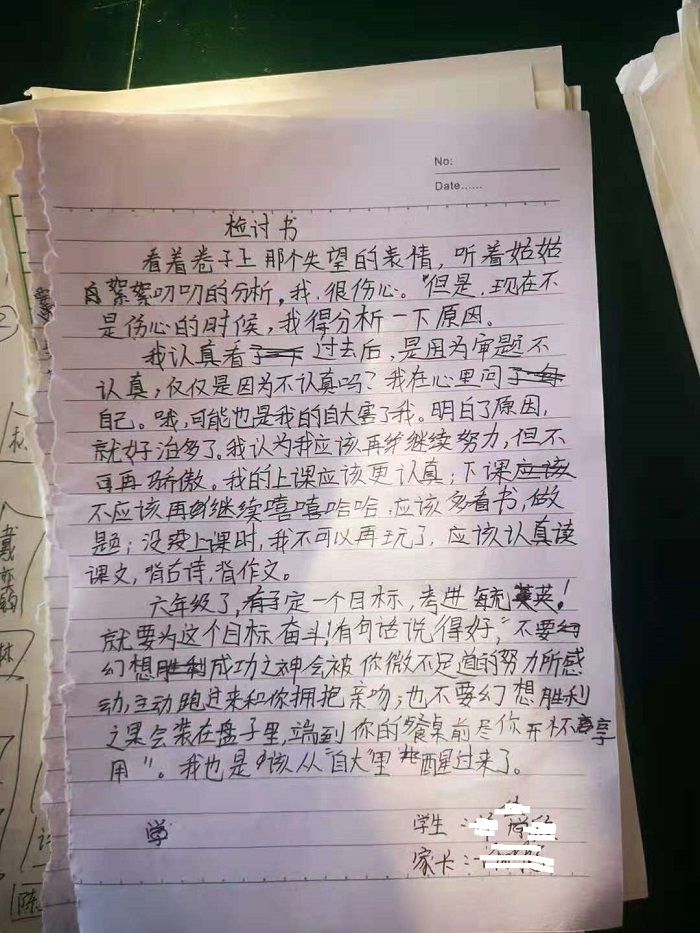 No:
Date......
检讨书
看着卷子上那个失望的表情，听着姑姑
絮絮叨叨的分析，我很伤心。但是，现在不
是伤心的时候，我得分析一下原因。
我认真看过去后，是因为审题不
认真，仅仅是因为不认真吗？我在心里问
自己。哦，可能也是我的自大害了我。明白了原因，
就好治多了。我认为我应该再继续努力，但不
可再骄傲。我的上课应该更认真；下课
不应该再继续嘻嘻哈哈，应该多看书，做
题；没上课时，我不可以再玩了，应该认真读
课文，背古诗，背作文。
六年级了，定一个目标，考进英！
就要为这个目标奋斗！有句话说得好，"不要
幻想成功之神会被你微不足道的努力所感
动，主动跑过来和你拥抱亲吻；也不要幻想胜利
之果会装在盘子里，端到你的餐桌前尽你开杯享
用"。我也是该从"自大"里醒过来了。
学
学生：
家长：
陈